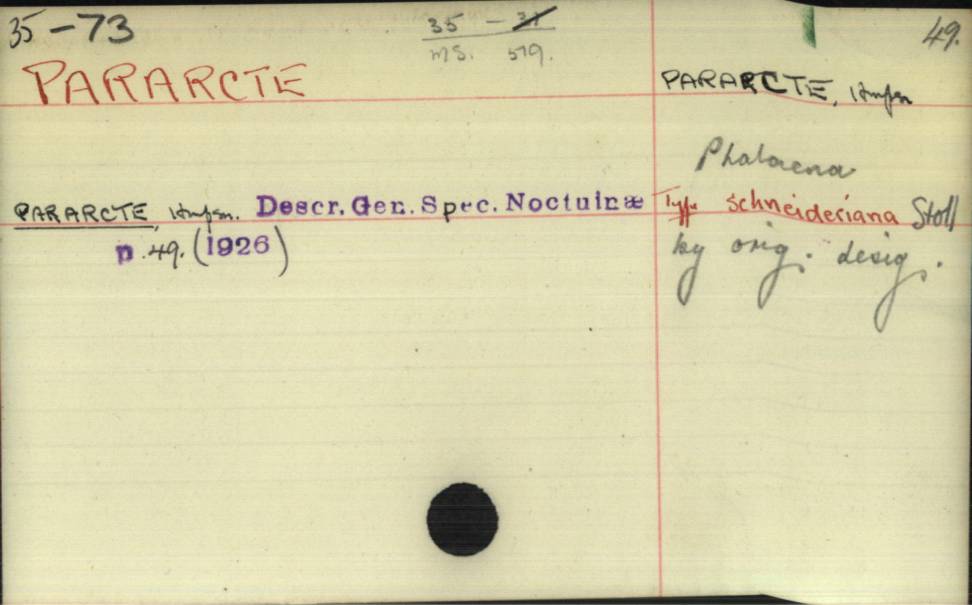 35-73
35 - 31
49.
ms. 519.
PARARCTE
PARARCTE, Hmpsn
Phalaena
PARARCTE, Hmpsn. Descr. Gen. Spec. Noctuinæ
p. 49. (1926)
Type schneideriana Stoll
by orig. desig.